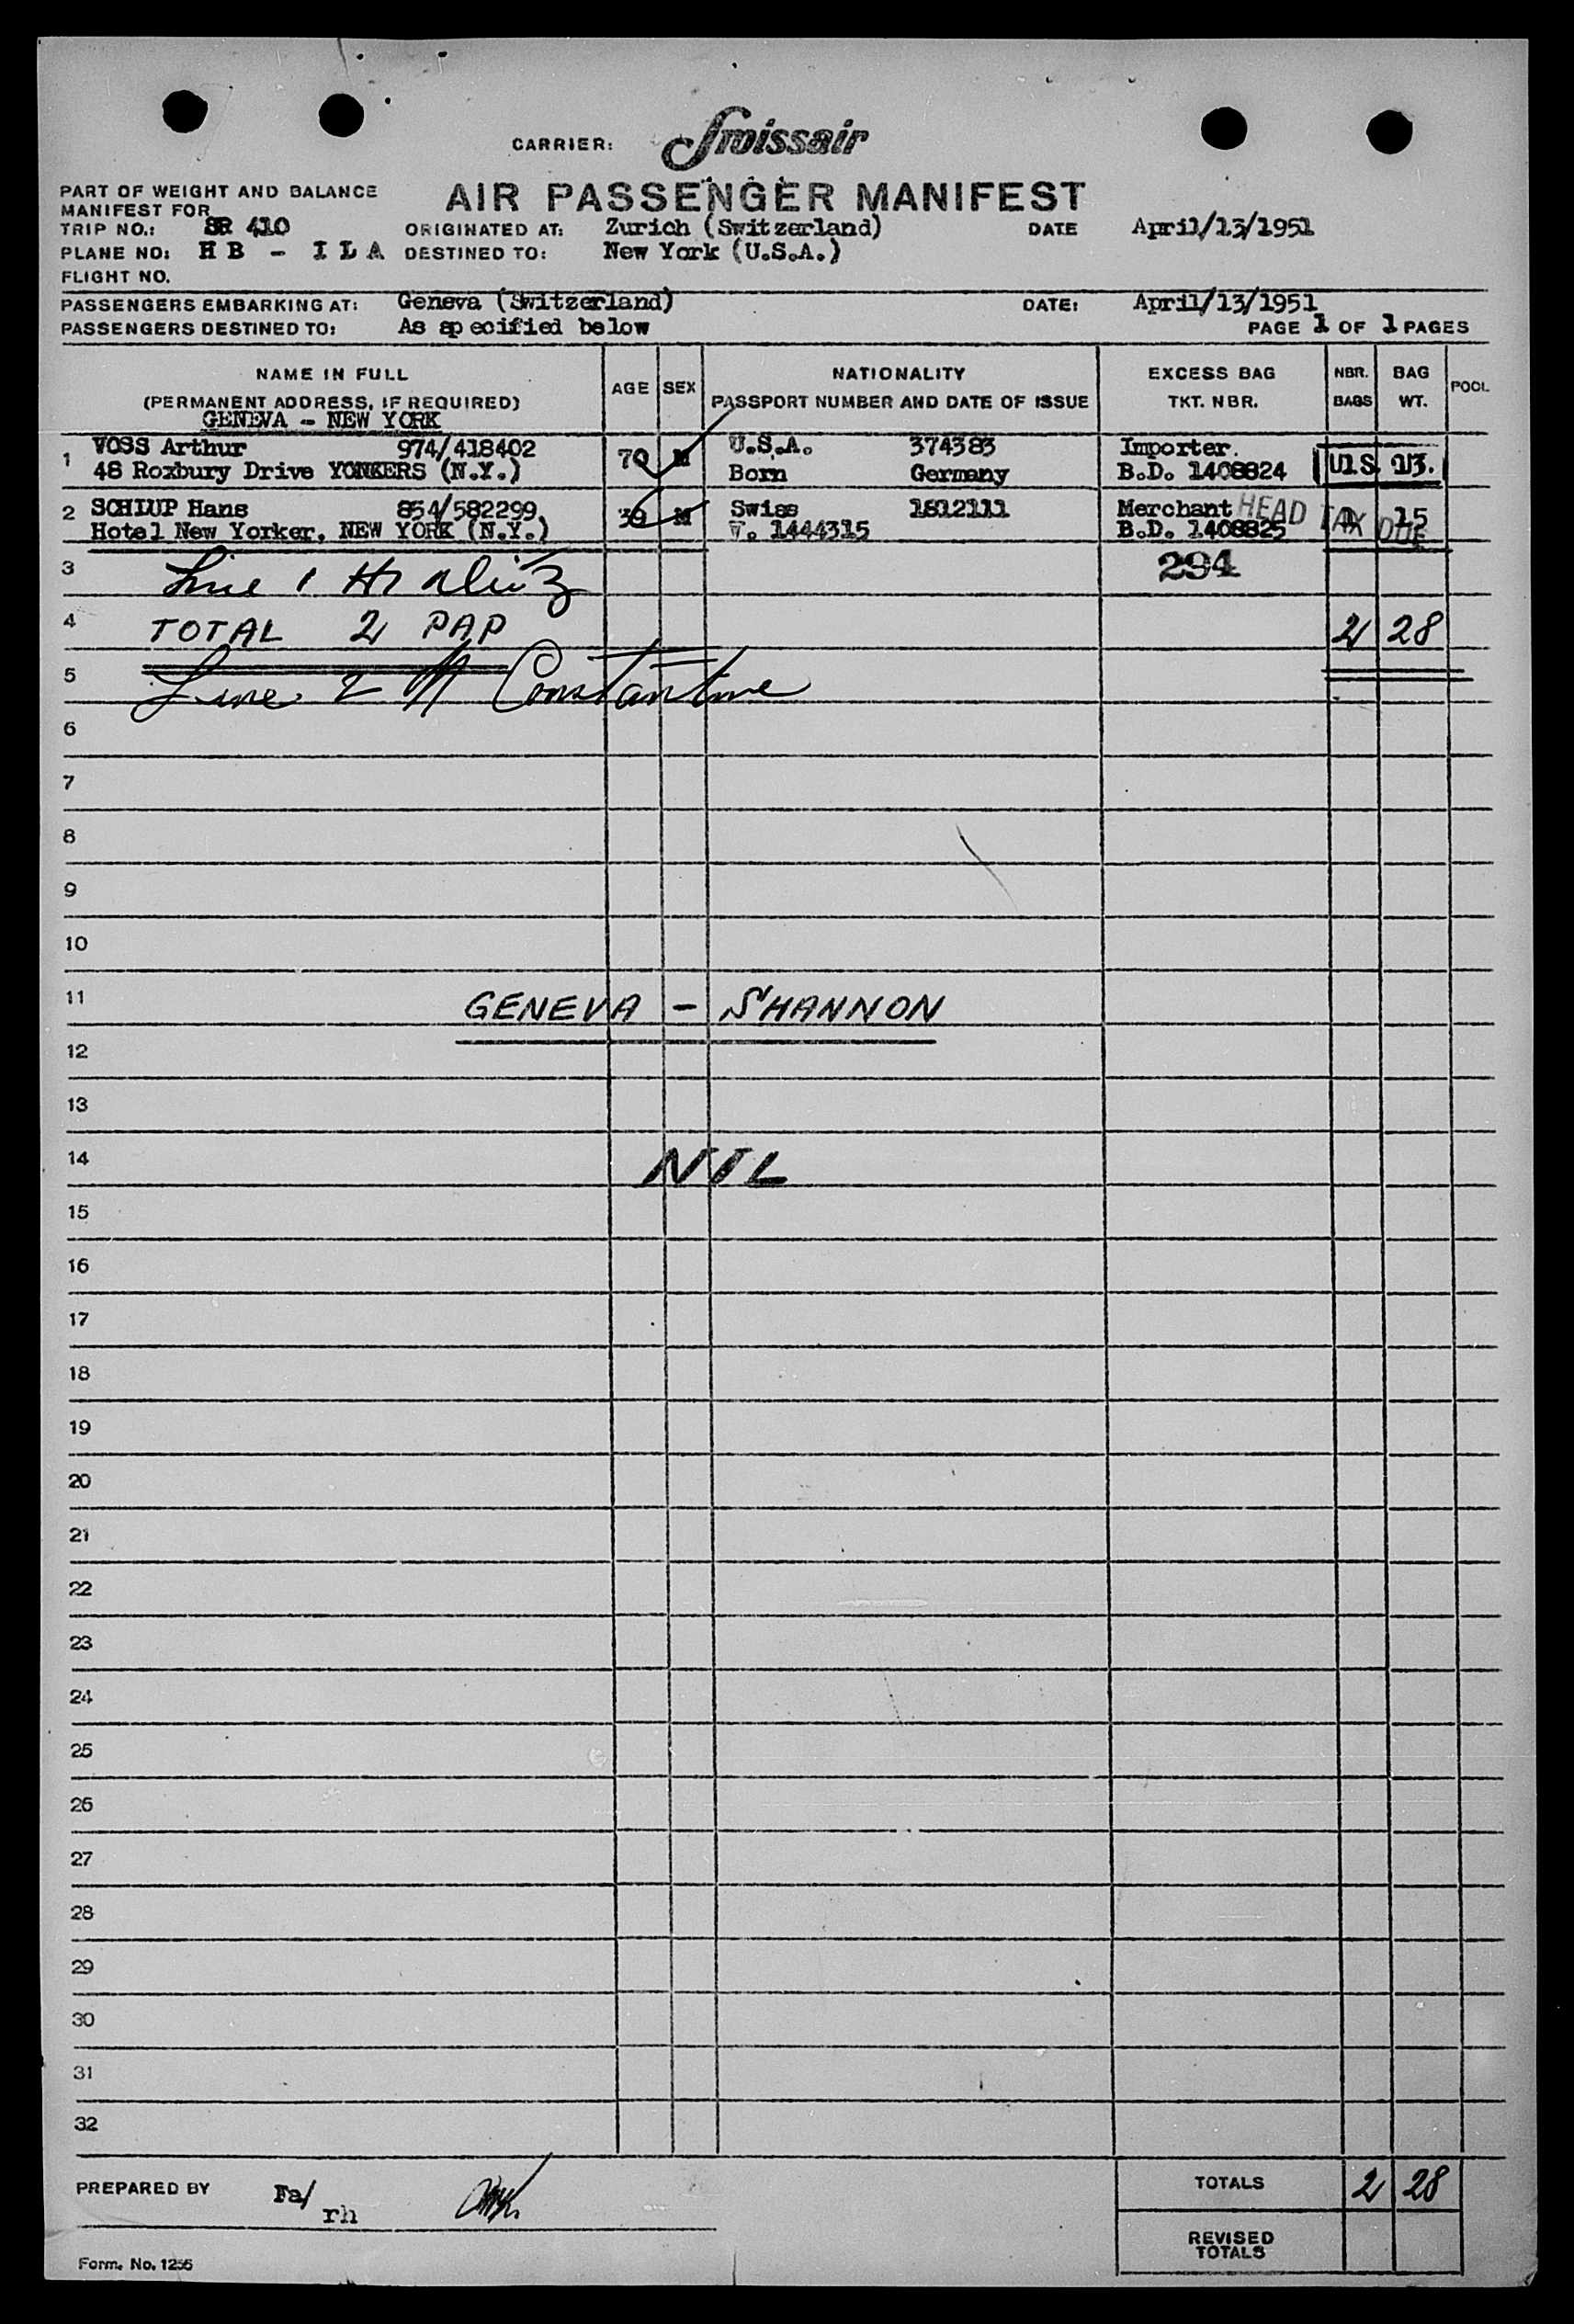 CARRIER: Swissair
PART OF WEIGHT AND BALANCE
MANIFEST FOR
AIR PASSENGER MANIFEST
TRIP NO.: SR 410 ORIGINATED AT: Zurich (Switzerland) DATE April/13/1951
PLANE NO: H B - I L A DESTINED TO: New York (U.S.A.)
FLIGHT NO.
PASSENGERS EMBARKING AT: Geneva (Switzerland) DATE: April/13/1951
PASSENGERS DESTINED TO: As specified below PAGE 1 OF 1 PAGES
NAME IN FULL AGE SEX NATIONALITY EXCESS BAG NBR. BAG POOL
(PERMANENT ADDRESS, IF REQUIRED) PASSPORT NUMBER AND DATE OF ISSUE TKT. NBR. BAGS WT.
GENEVA - NEW YORK
1 VOSS Arthur 974/418402 70 M U.S.A. 374383 Importer. U1S. 13.
48 Roxbury Drive YONKERS (N.Y.) Born Germany B.D. 1408824
2 SCHLUP Hans 854/582299 39 M Swiss 1812111 Merchant HEAD TAX DUE 1 15
Hotel New Yorker, NEW YORK (N.Y.) V. 1444315 B.D. 1408825
3 Line 1 294
4 TOTAL 2 PAP 2 28
5 Line 2 M Constantine
6
7
8
9
10
11 GENEVA - SHANNON
12
13
14 NIL
15
16
17
18
19
20
21
22
23
24
25
26
27
28
29
30
31
32
PREPARED BY Fa/ rh TOTALS 2 28
REVISED TOTALS
Form. No. 1256